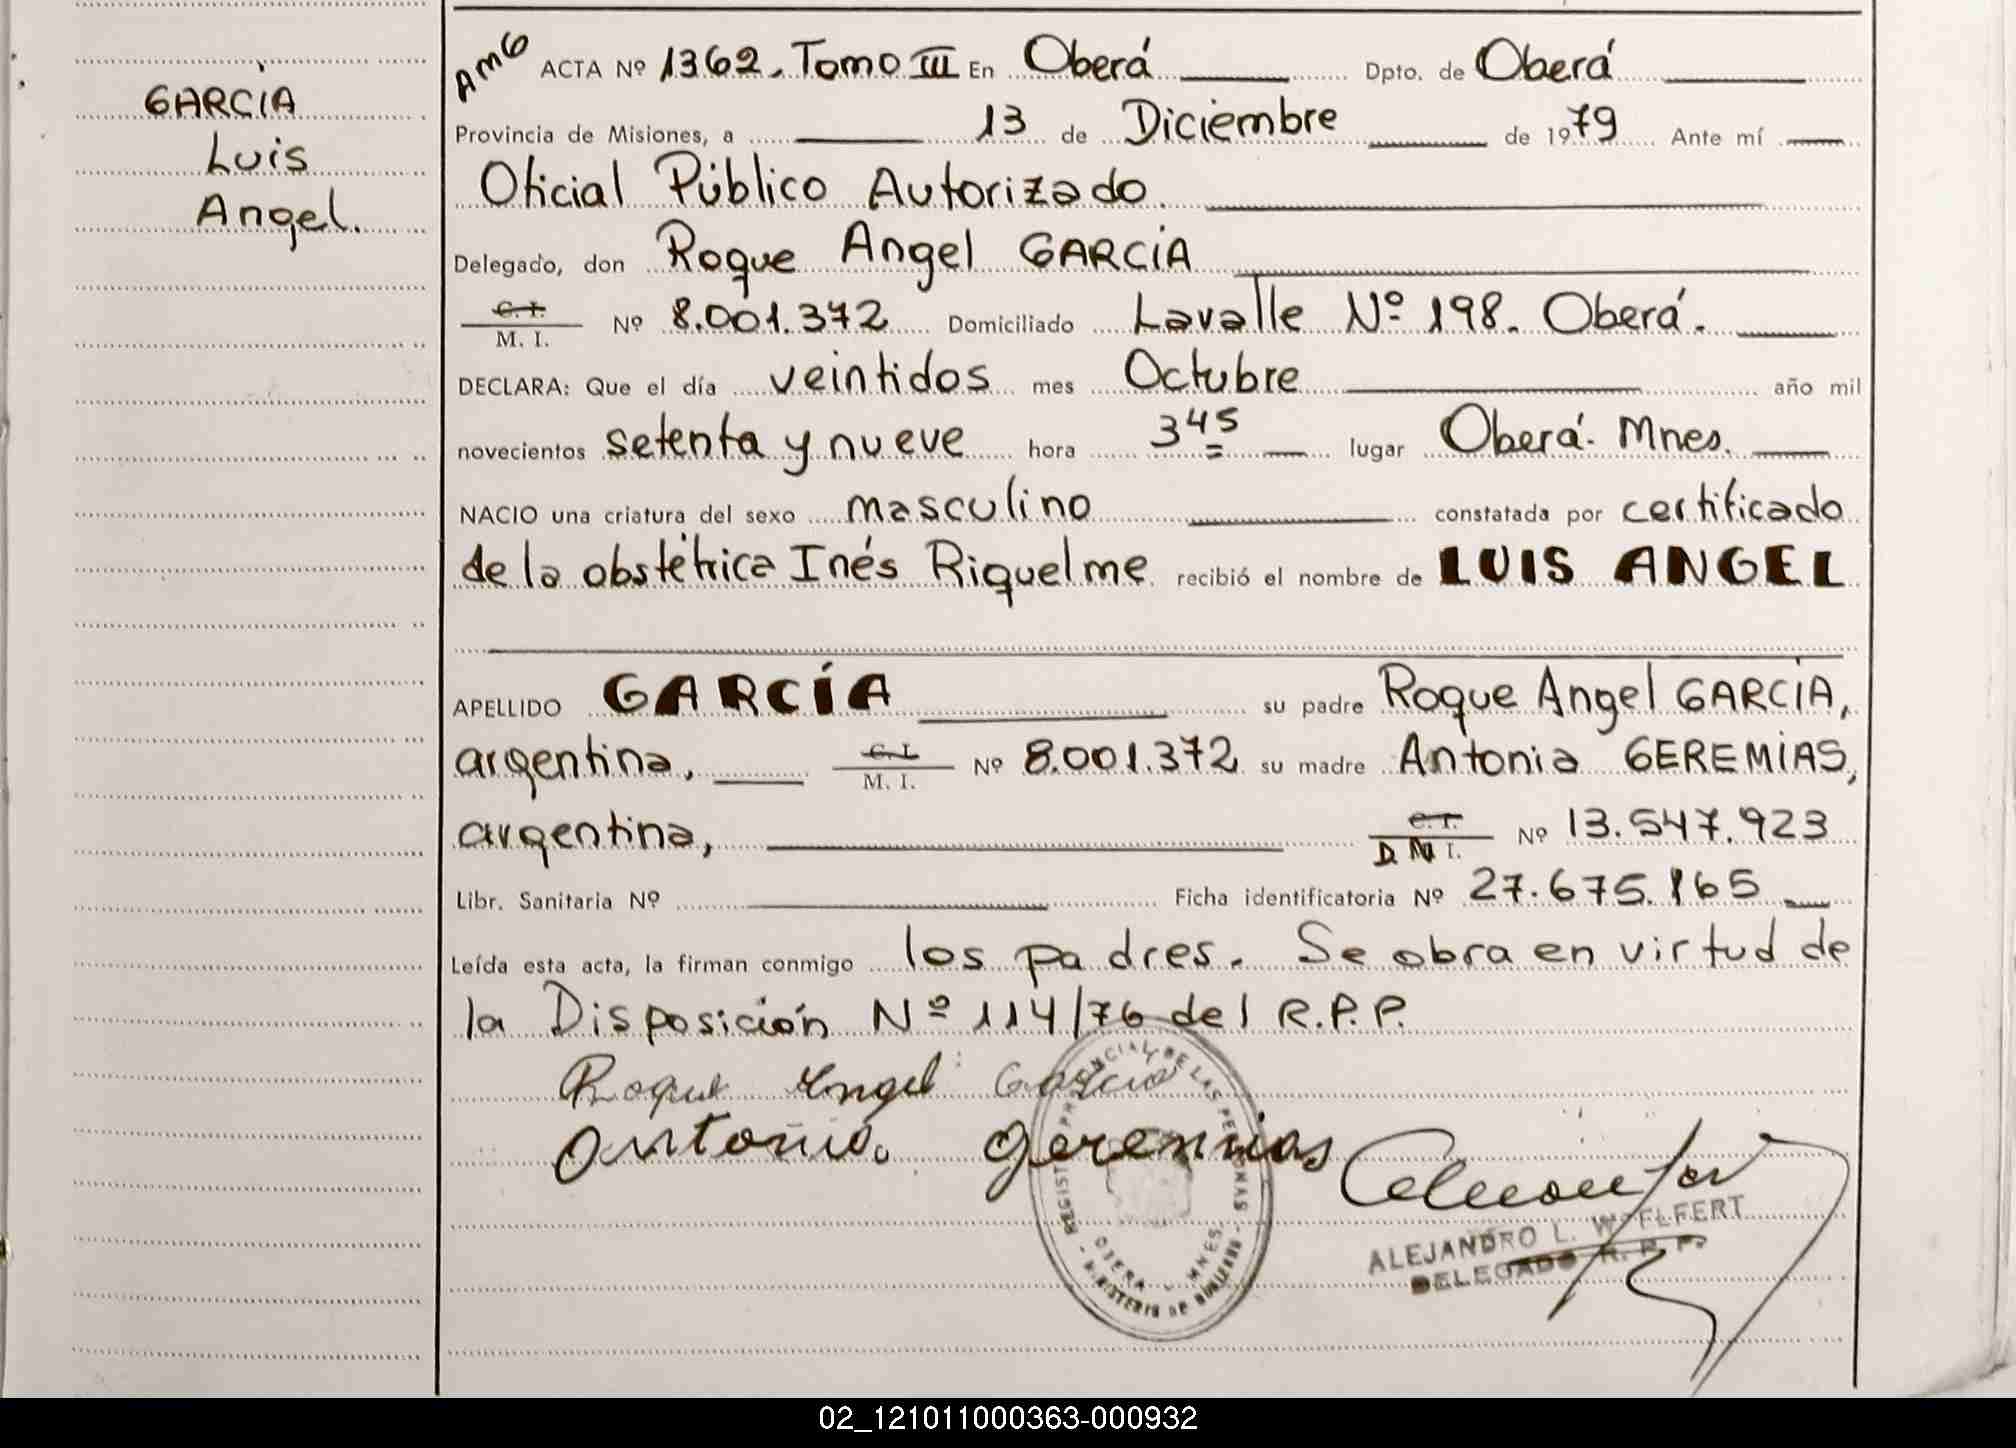 GARCÍA
Luis
Angel.
AMG ACTA Nº 1362. Tomo III En Oberá Dpto. de Oberá
Provincia de Misiones, a 13 de Diciembre de 1979 Ante mí
Oficial Público Autorizado.
Delegado, don Roque Angel GARCÍA
C. I.
M. I. Nº 8.001.372 Domiciliado Lavalle Nº 198. Oberá.
DECLARA: Que el día veintidos mes Octubre año mil
novecientos setenta y nueve hora 3 45 lugar Oberá. Mnes.
NACIO una criatura del sexo masculino constatada por certificado
de la obstétrica Inés Riquelme recibió el nombre de LUIS ANGEL
APELLIDO GARCÍA su padre Roque Angel GARCÍA,
argentina, C. I. M. I. Nº 8.001.372 su madre Antonia GEREMIAS,
argentina, C. I. D.N.I. Nº 13.547.923
Libr. Sanitaria Nº Ficha identificatoria Nº 27.675.165
Leída esta acta, la firman conmigo los padres. Se obra en virtud de
la Disposición Nº 114/76 del R.P.P.
Roque Angel Garcia
Antonia geremias
REGISTRO PROVINCIAL DE LAS PERSONAS
OBERA - MNES.
MINISTERIO DE GOBIERNO
ALEJANDRO L. WOELFERT
DELEGADO R. P. P.
02_121011000363-000932